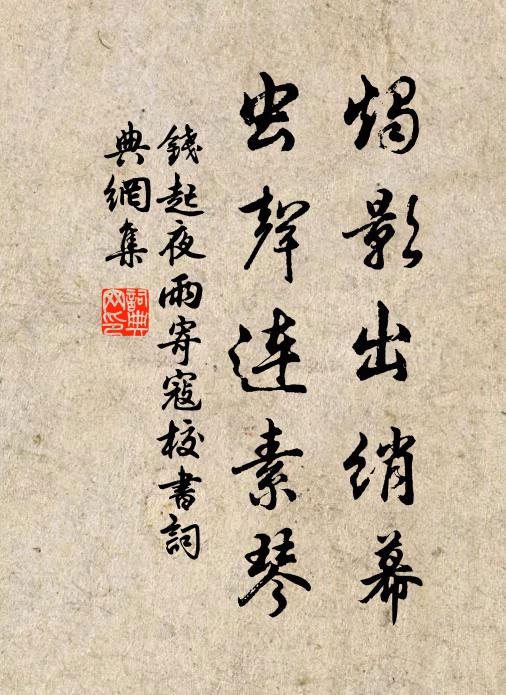 燭影出綃幕
虫聲連素琴
錢起夜雨寄寇校書詞
典網集
詞典網印